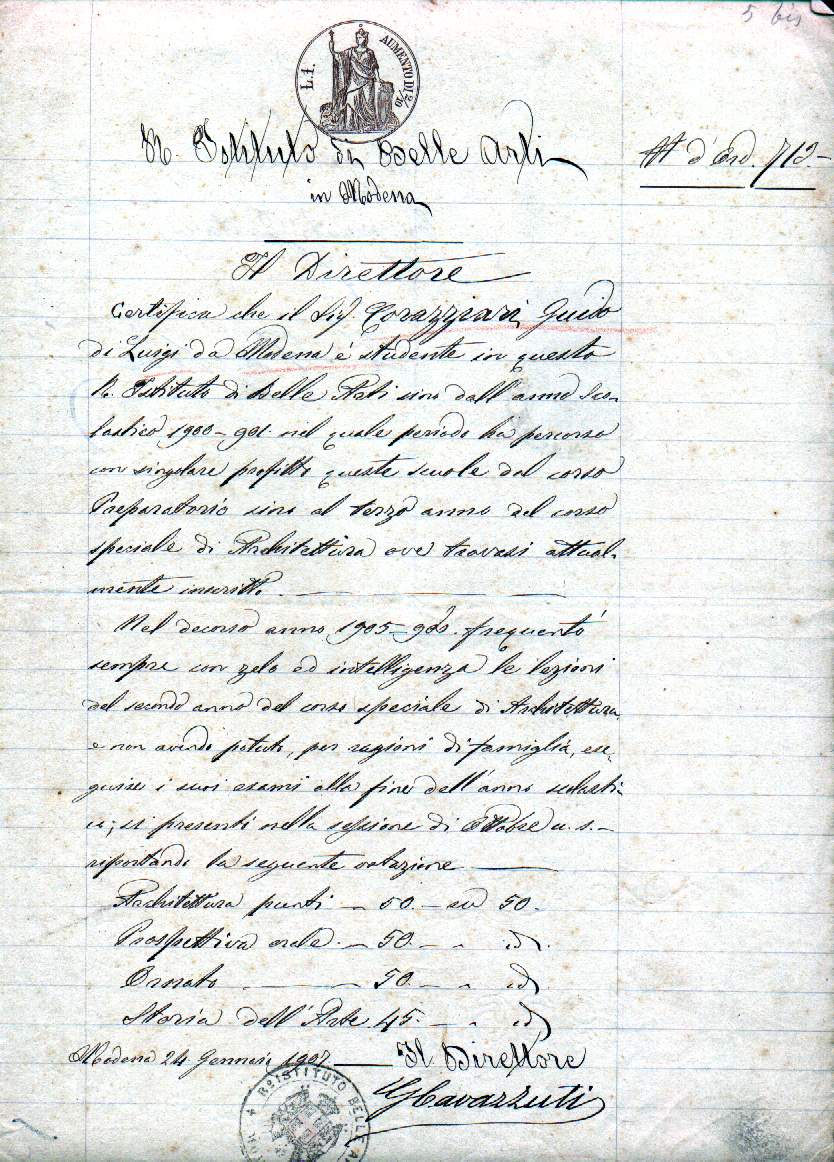 5 bis
L. 1.
AUMENTO DI 2/10
R. Istituto di Belle Arti
in Modena
N d'Ord. 712.-
Il Direttore
Certifica che il Sig. Corazziari Guido
di Luigi da Modena è studente in questo
R. Istituto di Belle Arti sino dall'anno Sco-
lastico 1900-901 nel quale periodo ha percorso
con singolare profitto queste scuole dal corso
Preparatorio sino al terzo anno del corso
speciale di Architettura ove trovasi attual-
mente inscritto.
Nel decorso anno 1905-906. frequentò
sempre con zelo ed intelligenza le lezioni
del secondo anno del corso speciale di Architettura,
e non avendo potuto, per ragioni di famiglia, ese-
guire i suoi esami alla fine dell'anno scolasti-
co; si presentò nella sessione di Ottobre u. s.-
riportando la seguente votazione
Architettura punti - 50.- su 50.
Prospettiva orale.- 50.- " id.
Ornato - 50.- " id
Storia dell'Arte 45.- " id
Modena 24 Gennaio 1907 Il Direttore
Cavazzuti
Rº ISTITUTO BELLE